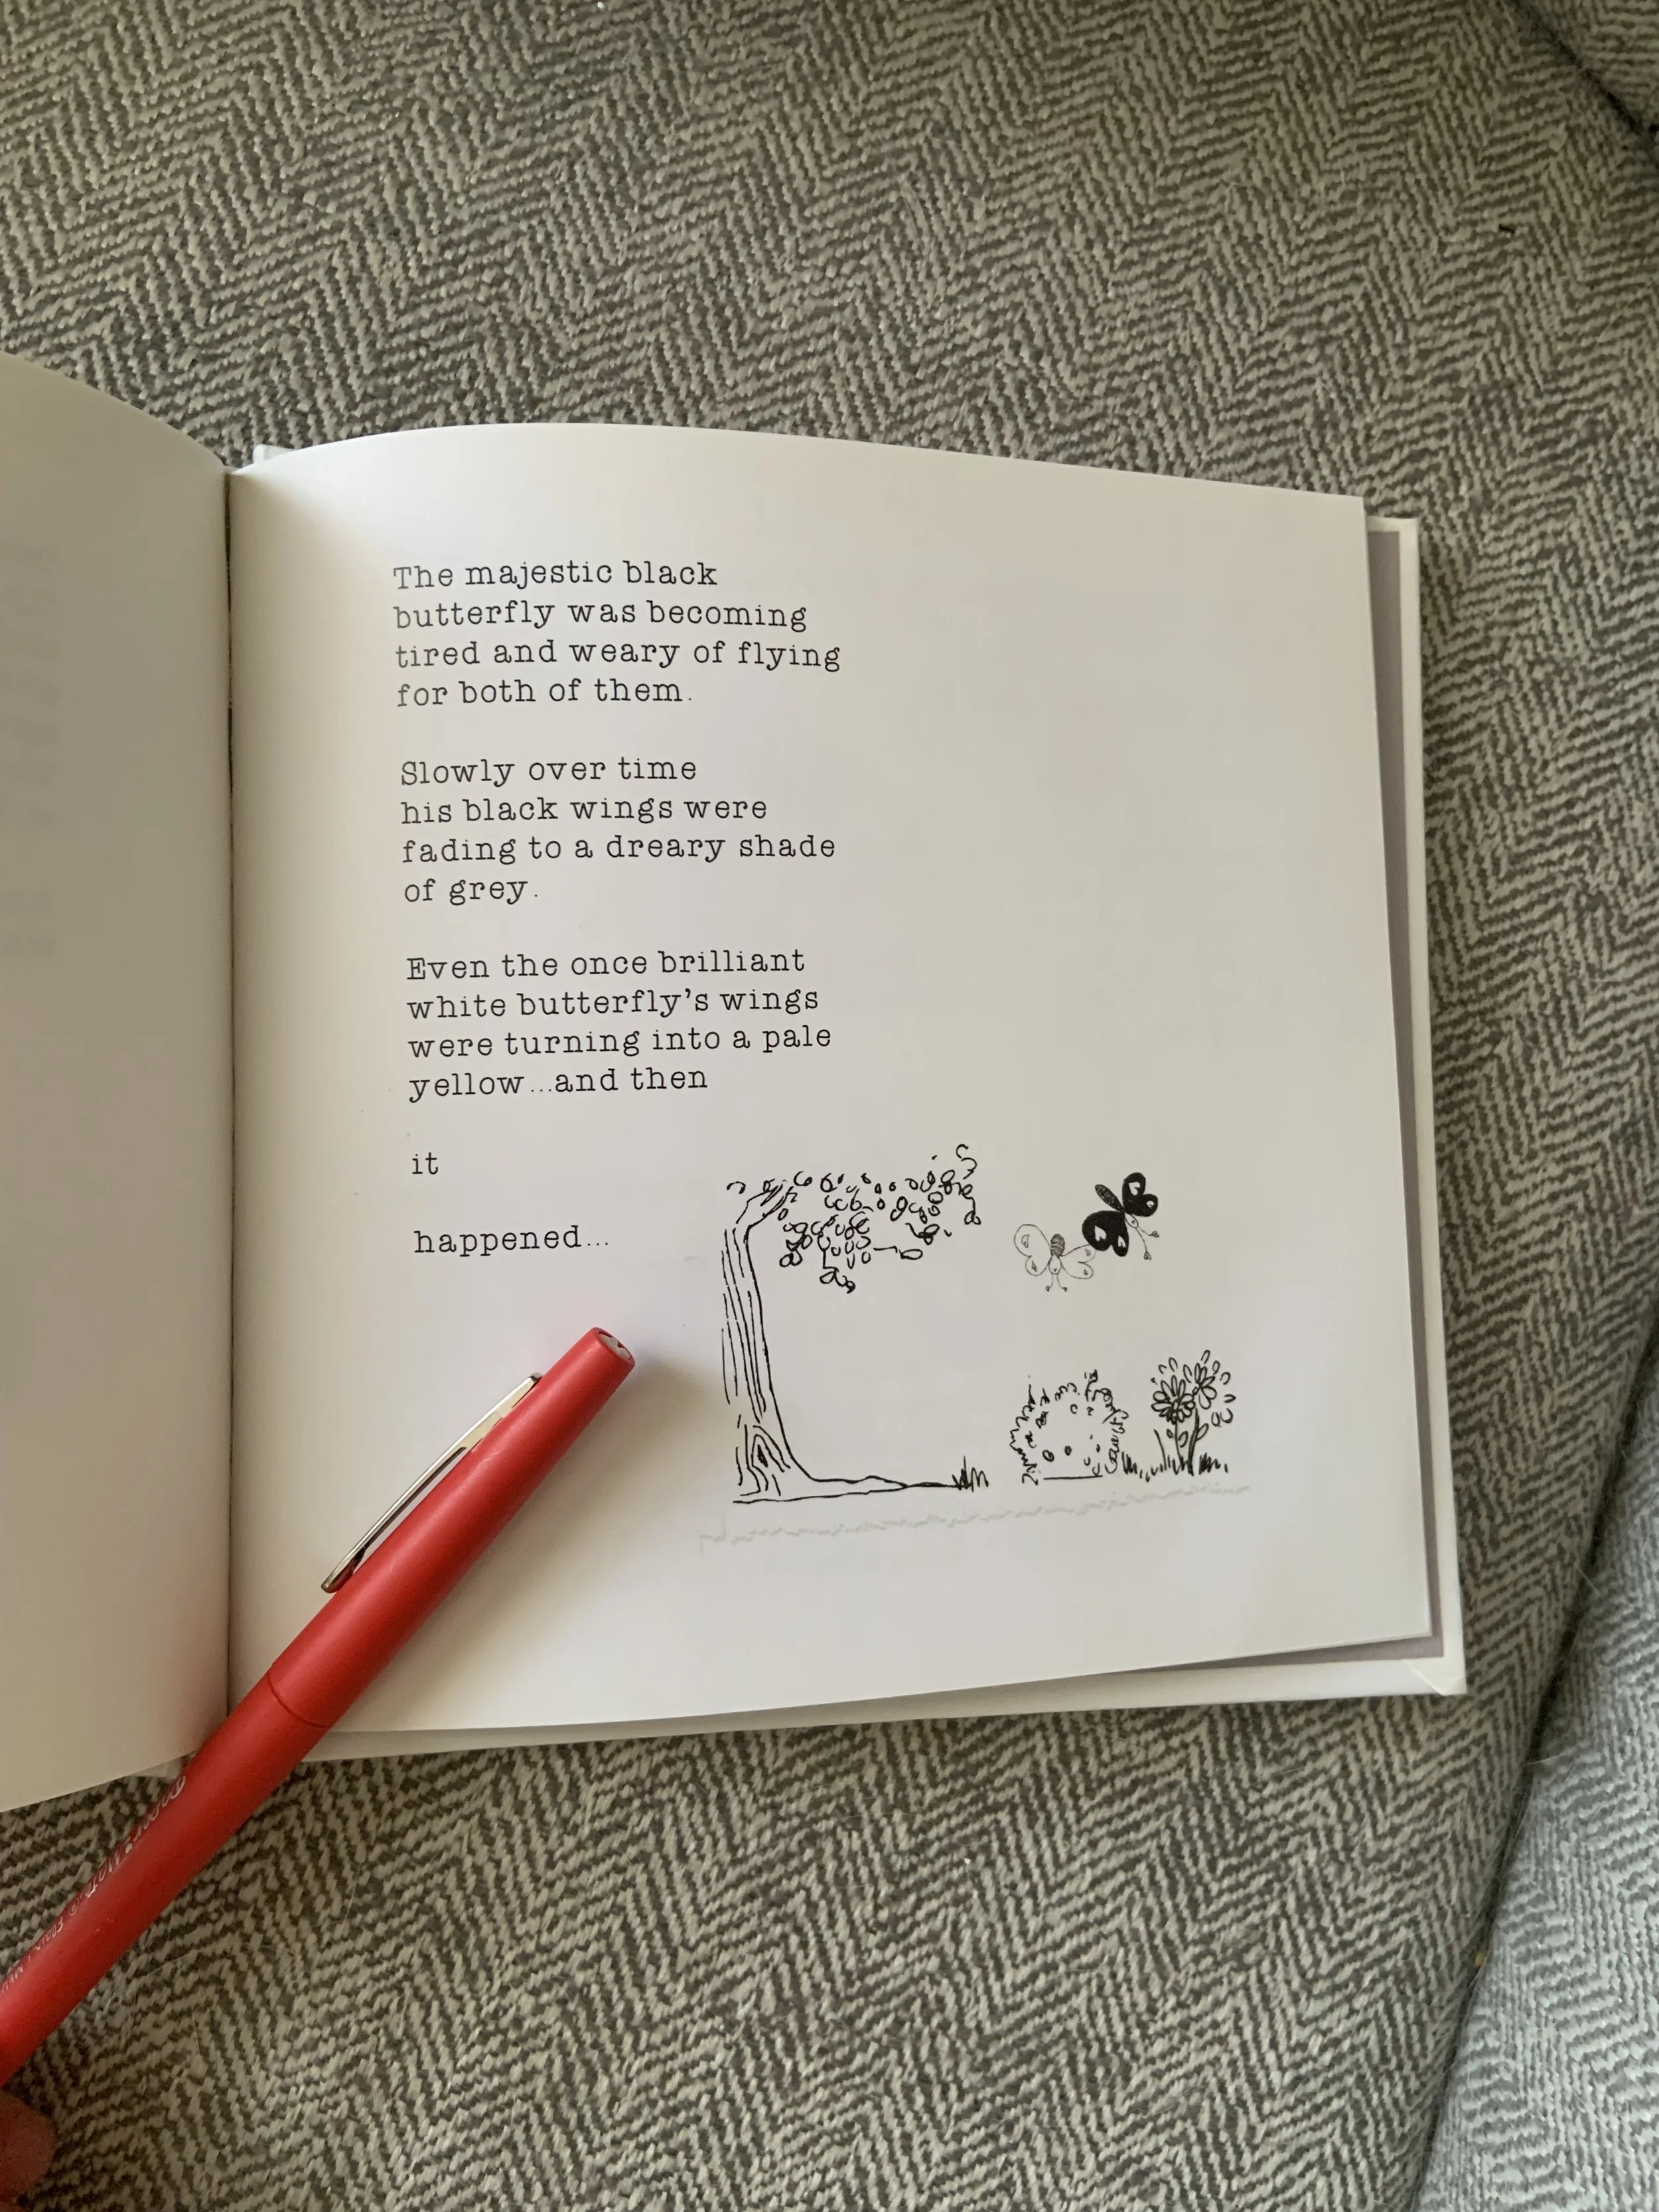 The majestic black
butterfly was becoming
tired and weary of flying
for both of them.
Slowly over time
his black wings were
fading to a dreary shade
of grey.
Even the once brilliant
white butterfly's wings
were turning into a pale
yellow...and then
it
happened...